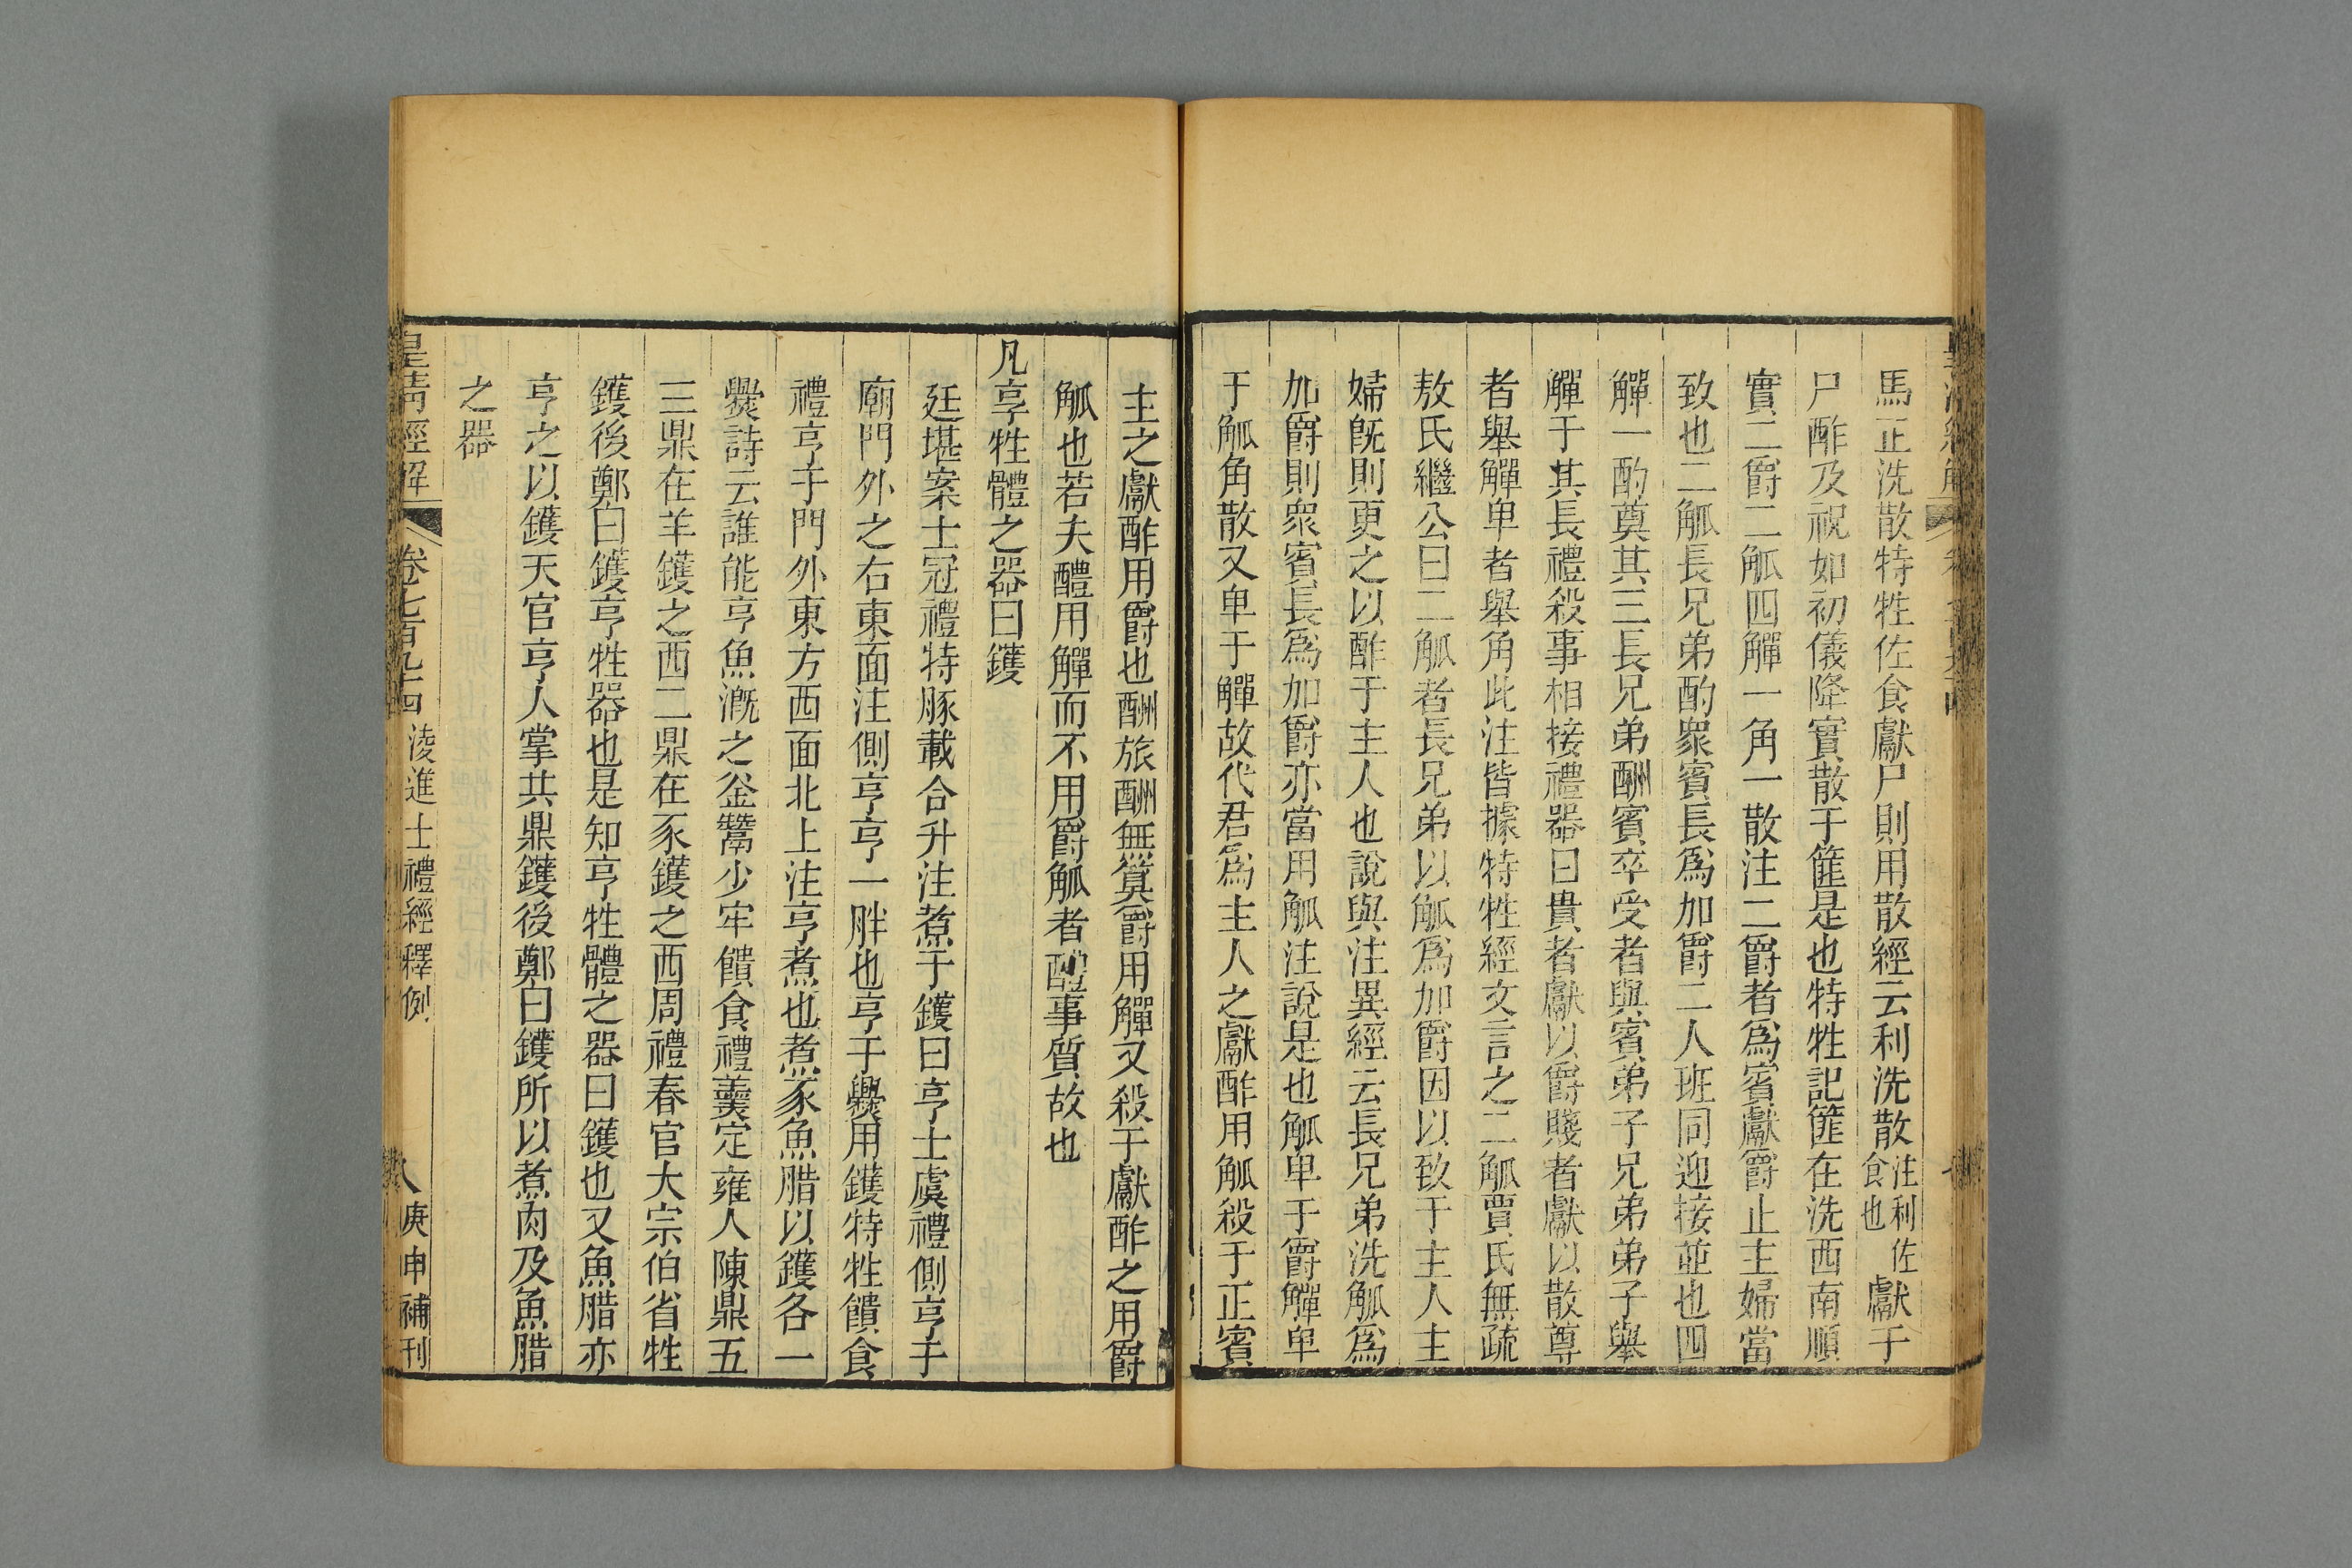 馬正洗散特牲佐食獻尸則用散經云利洗散注利佐食也獻于
尸酢及祝如初儀降實散于篚是也特牲記篚在洗西南順
實二爵二觚四觶一角一散注二爵者爲賓獻爵止主婦當
致也二觚長兄弟酌眾賓長爲加爵二人班同迎接並也四
觶一酌奠其三長兄弟酬賓卒受者與賓弟子兄弟弟子舉
觶于其長禮殺事相接禮器曰貴者獻以爵賤者獻以散尊
者舉觶卑者舉角此注皆據特牲經文言之二觚賈氏無疏
敖氏繼公曰二觚者長兄弟以觚爲加爵因以致于主人主
婦旣則更之以酢于主人也說與注異經云長兄弟洗觚爲
加爵則眾賓長爲加爵亦當用觚注說是也觚卑于爵觶卑
于觚角散又卑于觶故代君爲主人之獻酢用觚殺于正賓
主之獻酢用爵也酬旅酬無筭爵用觶又殺于獻酢之用爵
觚也若夫醴用觶而不用爵觚者醴事質故也
凡亨牲體之器曰鑊
廷堪案士冠禮特豚載合升注煮于鑊曰亨士虞禮側亨于
廟門外之右東面注側亨亨一胖也亨于爨用鑊特牲饋食
禮亨于門外東方西面北上注亨煮也煮豕魚腊以鑊各一
爨詩云誰能亨魚漑之釜鬵少牢饋食禮羹定雍人陳鼎五
三鼎在羊鑊之西二鼎在豕鑊之西周禮春官大宗伯省牲
鑊後鄭曰鑊亨牲器也是知亨牲體之器曰鑊也又魚腊亦
亨之以鑊天官亨人掌共鼎鑊後鄭曰鑊所以煮肉及魚腊
之器
皇清經解 卷七百九十四 淩進士禮經釋例 八 庚申補刊